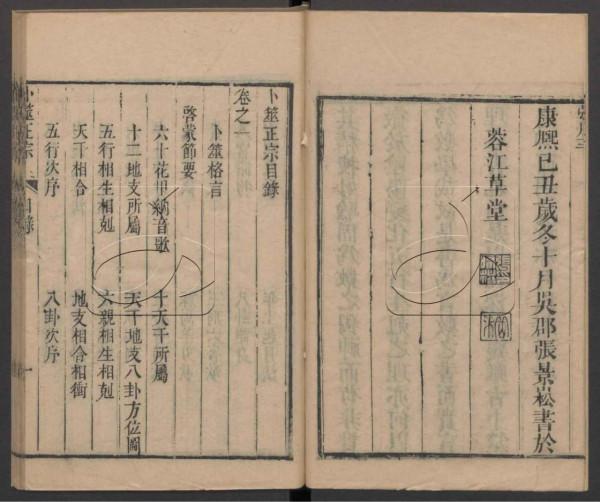 康熙己丑歲冬十月吳郡張景崧書於
蓉江草堂
卜筮正宗目錄
卷之一
卜筮格言
啓蒙節要
六十花甲納音歌
十天干所屬
十二地支所屬
天干地支八卦方位圖
五行相生相剋
六親相生相剋
天干相合
地支相合相衝
五行次序
八卦次序
卜筮正宗
目錄
一